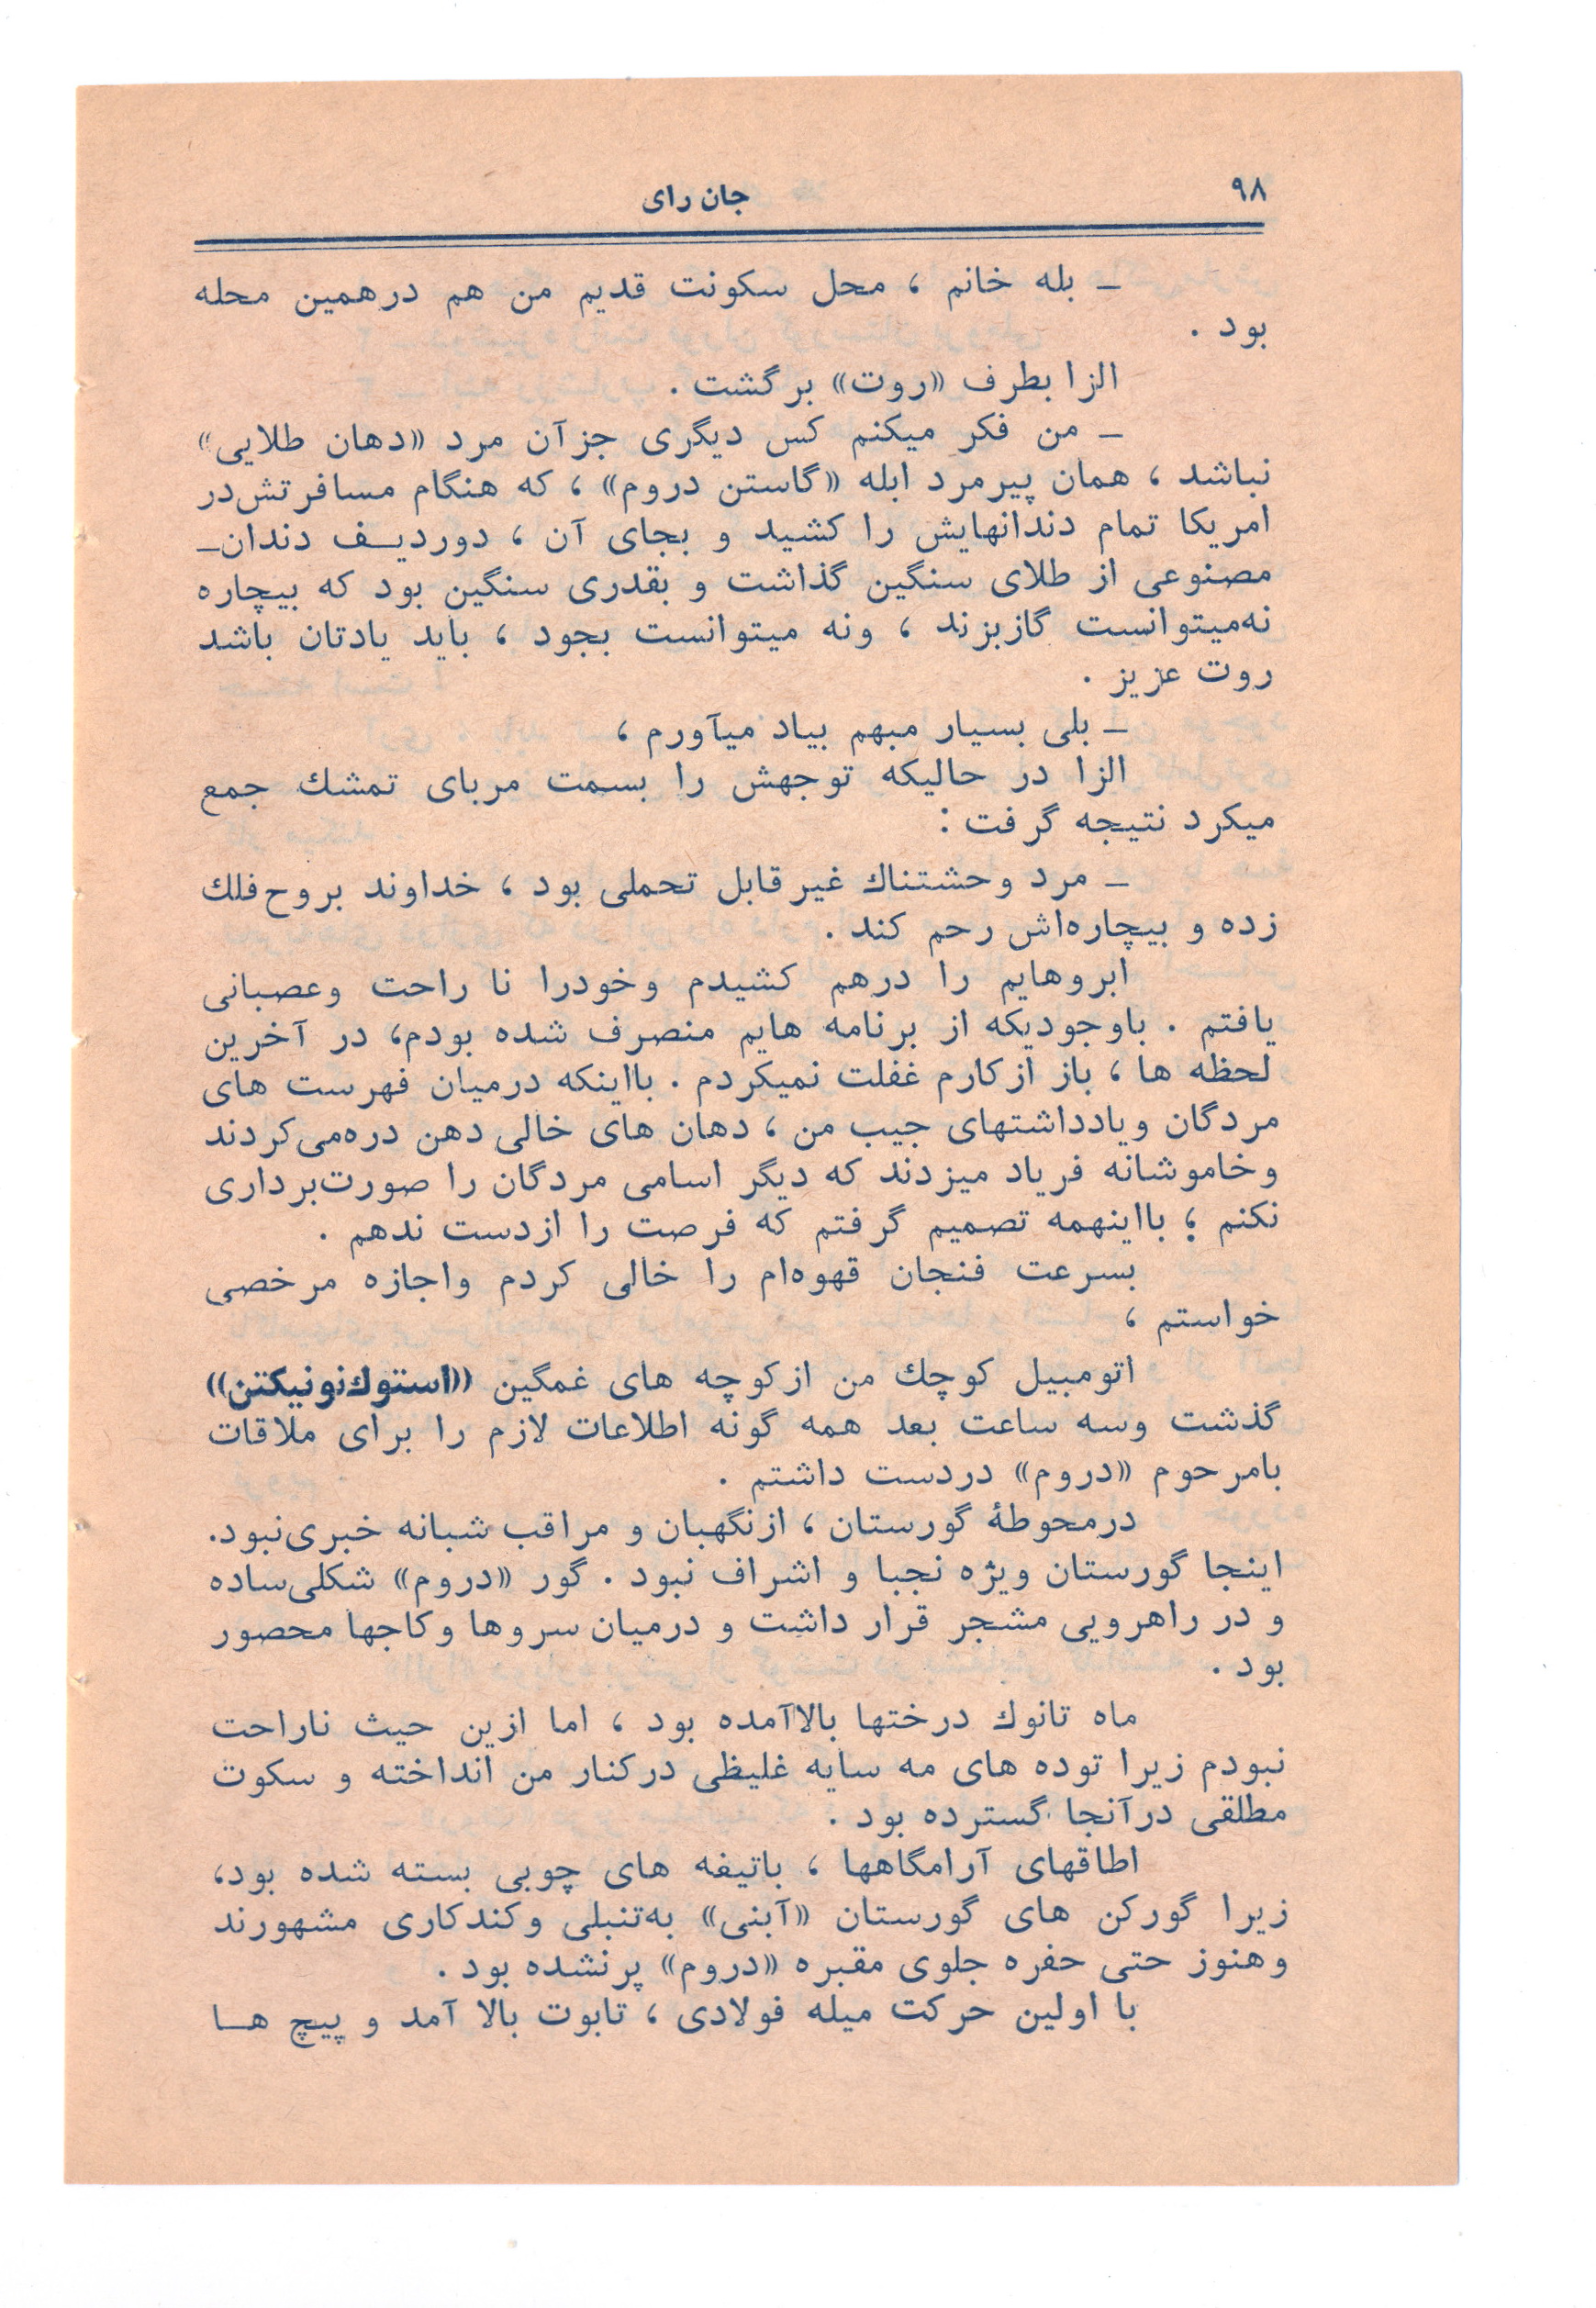 ۹۸
جان رای
ـ بله خانم ، محل سکونت قدیم من هم درهمین محله
بود .
الزا بطرف «روت» برگشت .
ـ من فکر میکنم کس دیگری جزآن مرد «دهان طلایی»
نباشد ، همان پیرمرد ابله «گاستن دروم» ، که هنگام مسافرتش‌در
امریکا تمام دندانهایش را کشید و بجای آن ، دوردیـف دندان‌ـ
مصنوعی از طلای سنگین گذاشت و بقدری سنگین بود که بیچاره
نه‌میتوانست گازبزند ، ونه میتوانست بجود ، باید یادتان باشد
روت عزیز .
ـ بلی بسیار مبهم بیاد میآورم ،
الزا در حالیکه توجهش را بسمت مربای تمشك جمع
میکرد نتیجه گرفت :
ـ مرد وحشتناك غیرقابل تحملی بود ، خداوند بروح‌فلك
زده و بیچاره‌اش رحم کند .
ابروهایم را درهم کشیدم وخودرا نا راحت وعصبانی
یافتم . باوجودیکه از برنامه هایم منصرف شده بودم، در آخرین
لحظه ها ، باز ازکارم غفلت نمیکردم . بااینکه درمیان فهرست های
مردگان ویادداشتهای جیب من ، دهان های خالی دهن دره‌می‌کردند
وخاموشانه فریاد میزدند که دیگر اسامی مردگان را صورت‌برداری
نکنم ؛ بااینهمه تصمیم گرفتم که فرصت را ازدست ندهم .
بسرعت فنجان قهوه‌ام را خالی کردم واجازه مرخصی
خواستم ،
اتومبیل کوچك من ازکوچه های غمگین «استوك‌نونیکتن»
گذشت وسه ساعت بعد همه گونه اطلاعات لازم را برای ملاقات
بامرحوم «دروم» دردست داشتم .
درمحوطهٔ گورستان ، ازنگهبان و مراقب شبانه خبری‌نبود.
اینجا گورستان ویژه نجبا و اشراف نبود . گور «دروم» شکلی‌ساده
و در راهرویی مشجر قرار داشت و درمیان سروها وکاجها محصور
بود .
ماه تانوك درختها بالاآمده بود ، اما ازین حیث ناراحت
نبودم زیرا توده های مه سایه غلیظی درکنار من انداخته و سکوت
مطلقی درآنجا گسترده بود .
اطاقهای آرامگاهها ، باتیفه های چوبی بسته شده بود،
زیرا گورکن های گورستان «آبنی» به‌تنبلی وکندکاری مشهورند
وهنوز حتی حفره جلوی مقبره «دروم» پرنشده بود .
با اولین حرکت میله فولادی ، تابوت بالا آمد و پیچ هـا